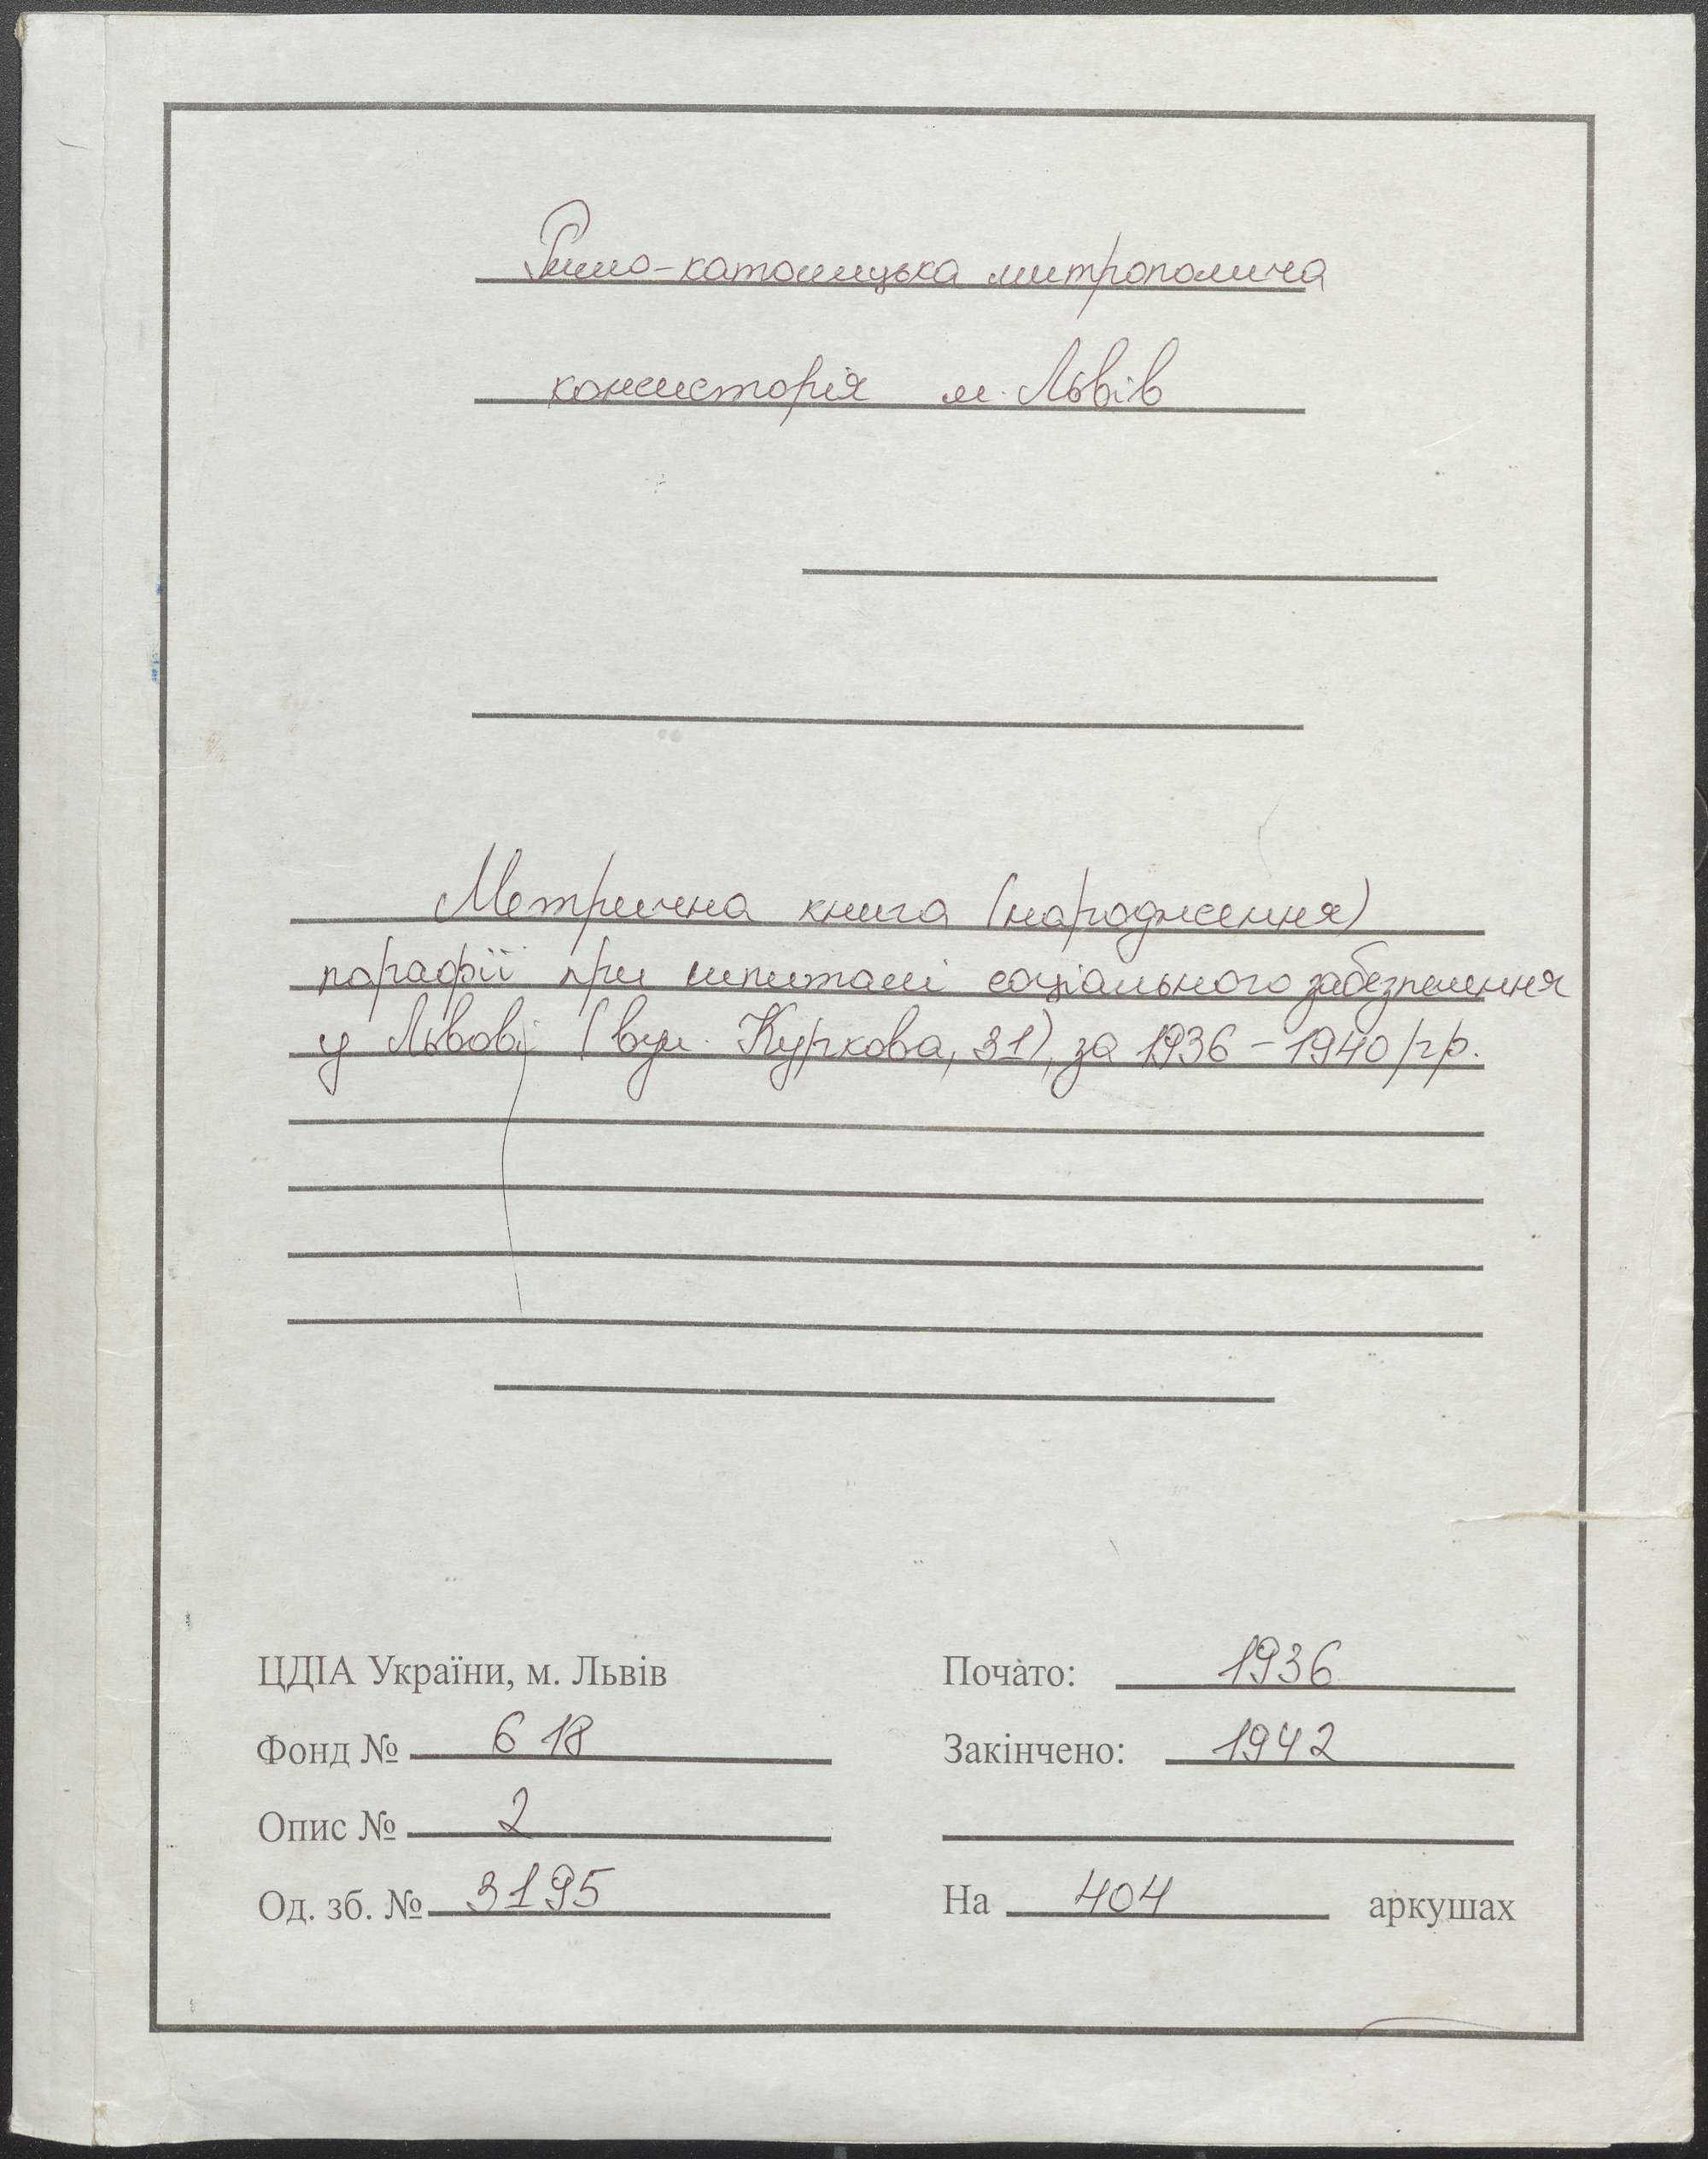 Римо-католицька митрополича
консисторія м. Львів
Метрична книга (народження)
парафії при шпиталі соціального забезпечення
у Львові (вул. Куркова, 31), за 1936-1940 рр.
ЦДІА України, м. Львів
Почато: 1936
Фонд № 618
Закінчено: 1942
Опис № 2
Од. зб. № 3195
На 404 аркушах